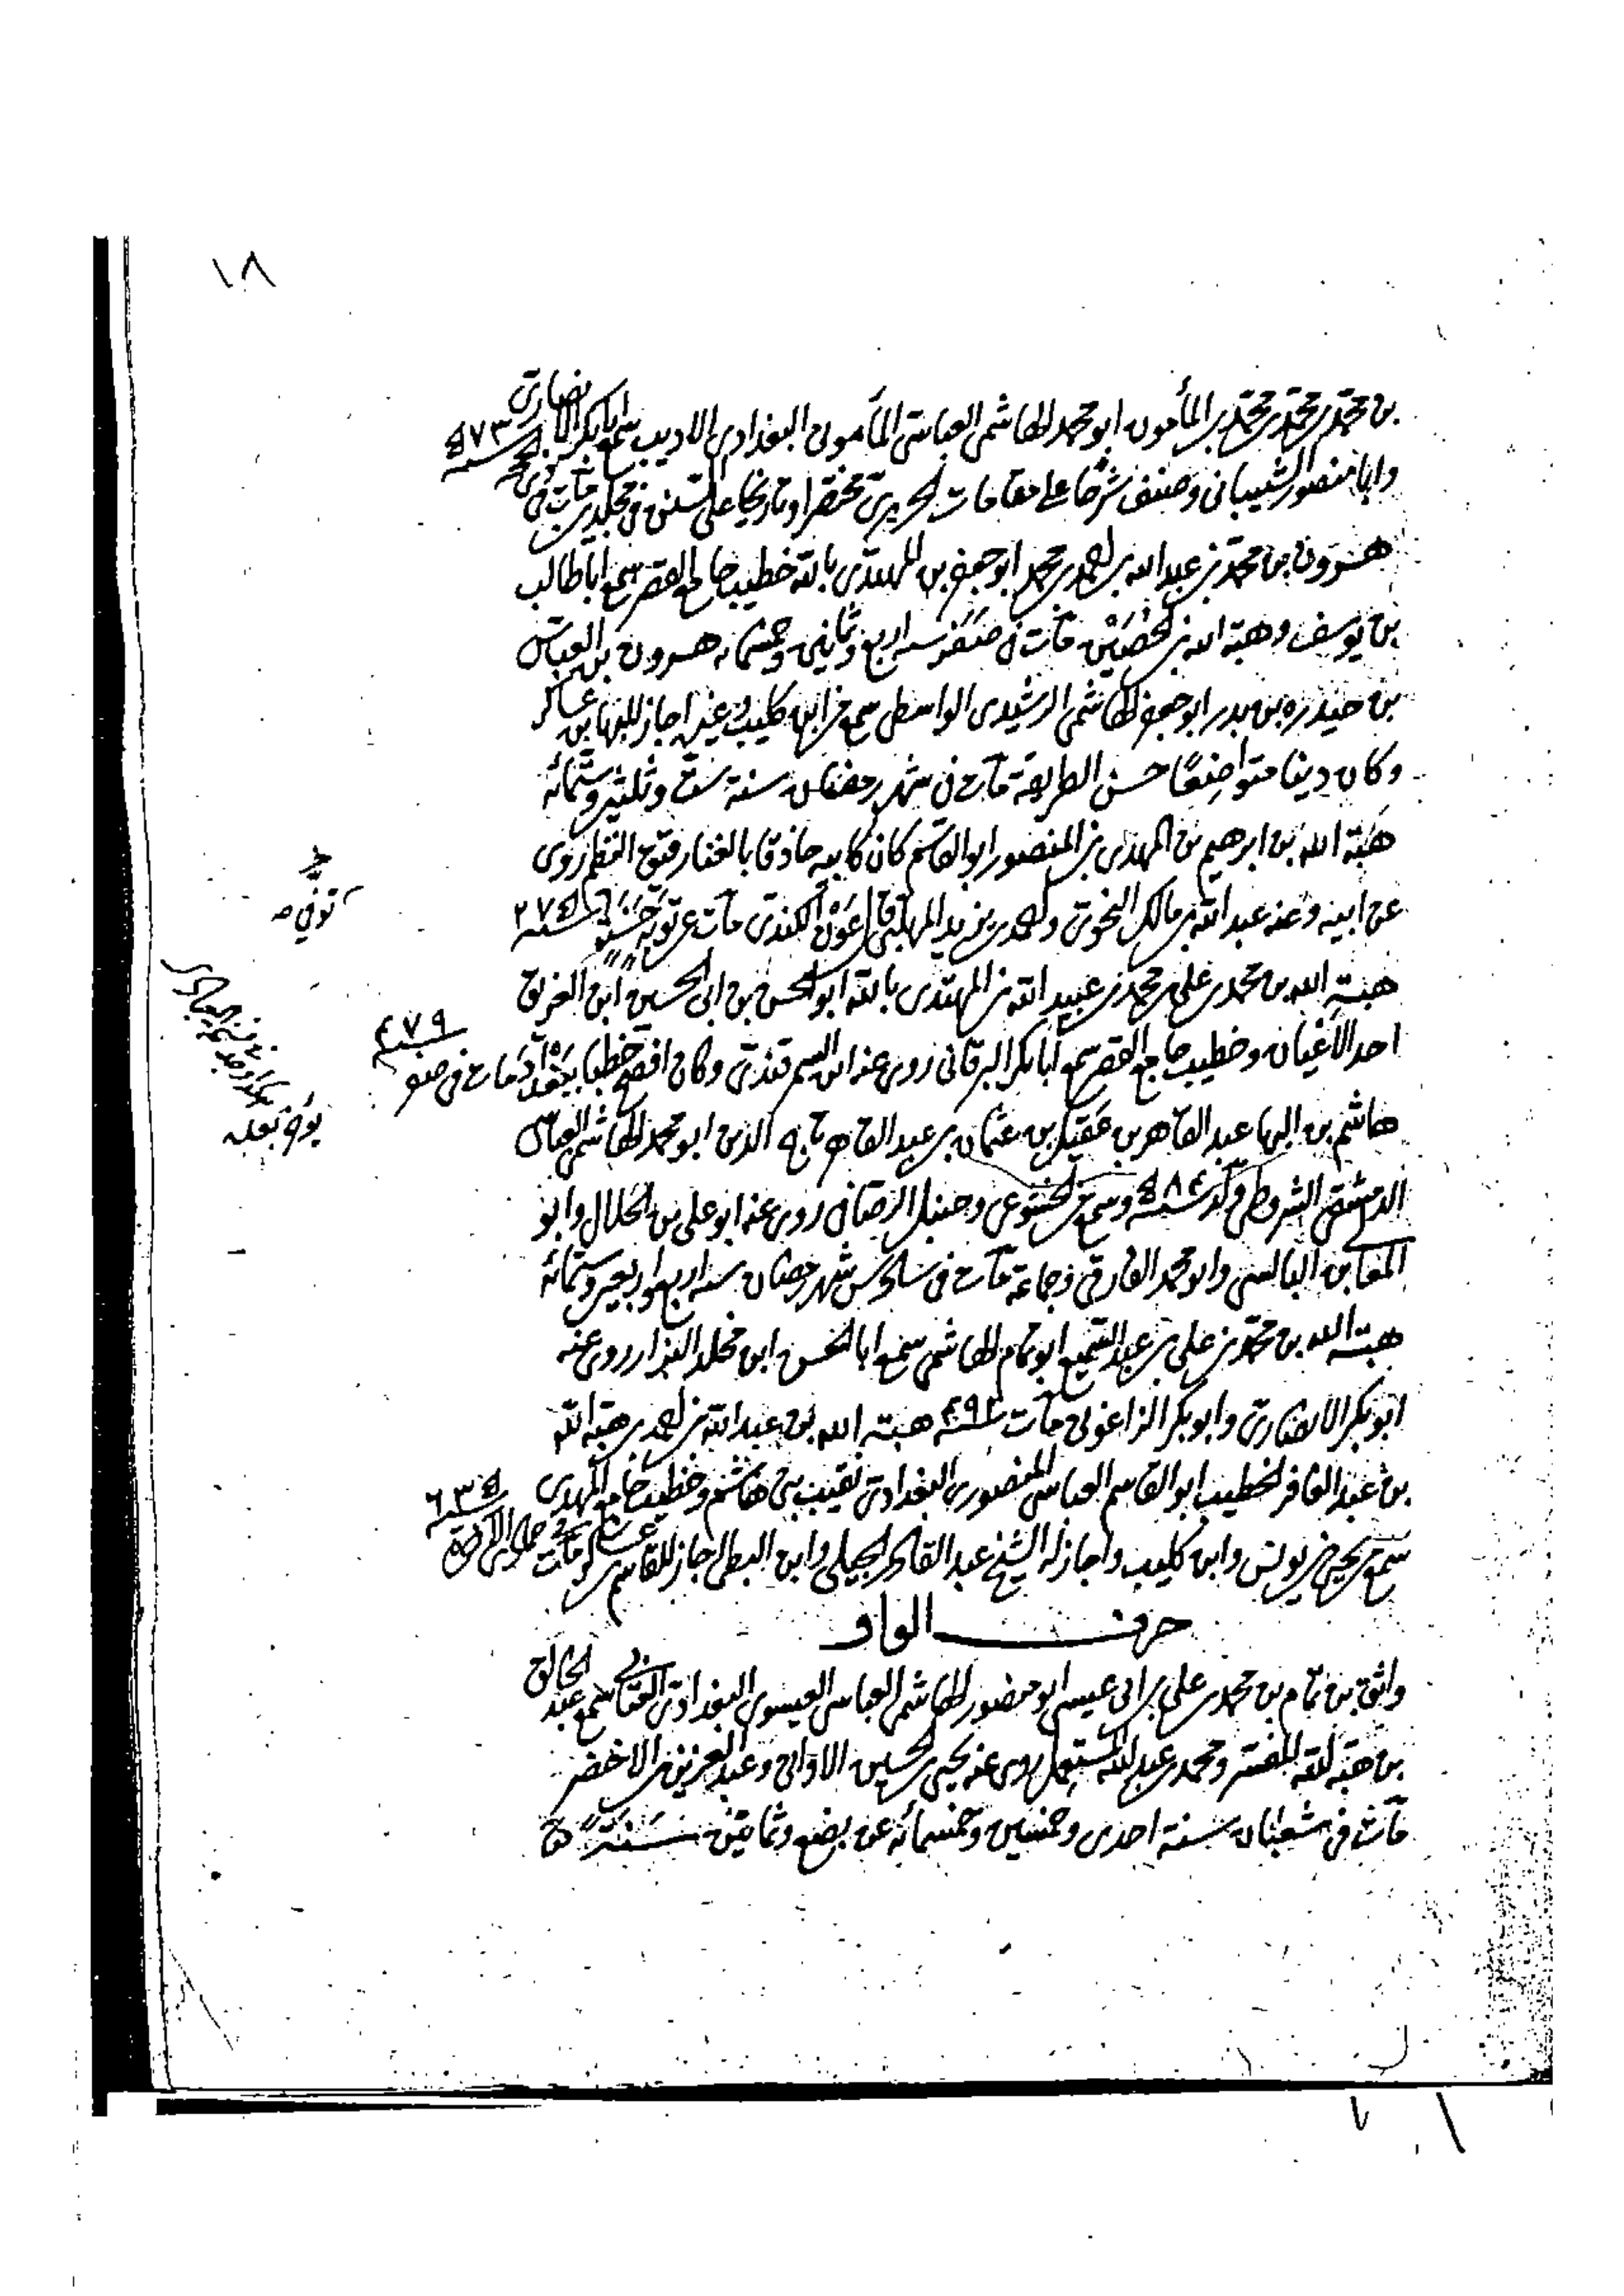 ١٨
بن محمد بن محمد بن محمد بن المأمون ابو محمد الهاشمي العباسي المأموني البغدادي الاديب سمع ابا بكر الانصاري
وابا منصور الشيباني وصنف شرحا على مقامات الحريري مختصرا وتاريخا على السنين في مجلدين مات في ذي الحجة سنة ٥٧٣
هرون بن محمد بن عبد الله بن احمد بن محمد ابو جعفر بن المهتدي بالله خطيب جامع القصر سمع ابا طالب
بن يوسف وهبة الله بن الحصين مات في صفر سنة اربع وثمانين وخمسمائه هرون بن العباس
بن حيدره بن بدر ابو جعفر الهاشمي الرشيدي الواسطي سمع من ابن كليب وغيره اجاز للبها بن عساكر
وكان دينا متواضعا حسن الطريقة مات في شهر رمضان سنة ست وثلثين وستمائه
هبة الله بن ابرهيم بن المهدي بن المنصور ابو القاسم كان كابيه حاذقا بالغنا رقيق النظم روى
عن ابيه وعنه عبد الله بن مالك النحوي واحمد بن يزيد المهلبي وعون الكندي مات عن توبة حسنة سنة ٢٧٥
هبة الله بن محمد بن علي بن محمد بن عبيد الله بن المهتدي بالله ابو الحسن بن ابي الحسين ابن الغريق
احد الاعيان وخطيب جامع القصر سمع ابا بكر البرقاني روى عنه ابن السمرقندي وكان افصح خطبا بغداد مات في صفر سنة ٤٧٩
هاشم بن البها عبد القاهر بن عقيل بن عثمان بن عبد القاهر تاج الدين ابو محمد الهاشمي العباسي
الدمشقي الشروطي ولد سنة ٥٨٤ وسمع الخشوعي وحنبل الرصافي روى عنه ابو علي بن الخلال وابو
المعا بن البالسي وابو محمد الفارقي وجماعة مات في سادس شهر رمضان سنة اربع واربعين وستمائه
هبة الله بن محمد بن علي بن عبد السميع ابو تمام الهاشمي سمع ابا الحسن ابن مخلد البزار روى عنه
ابو بكر الانصاري وابو بكر الزاغوني مات سنة هبة الله بن عبد الله بن احمد بن هبة الله
بن عبد القادر الخطيب ابو القاسم العباسي المنصوري البغدادي نقيب بني هاشم وخطيب جامع المهدي
سمع يحيى بن يونس وابن كليب واجاز له الشيخ عبد القادر الجيلي وابن البطي اجاز للقاسم بن عساكر مات في جمادى الاخرة سنة ٦٣٥
حرف الواو
واثق بن تمام بن محمد بن علي بن ابي عيسى ابو منصور الهاشمي العباسي العيسوي البغدادي سمع عبد الخالق
بن هبة الله المفسر ومحمد بن عبد الله المستعمل روى عنه يحيى بن الحسين الاواني وعبد العزيز بن الاخضر
مات في شعبان سنة احدى وخمسين وخمسمائه عن بضع وثمانين سنة
توفي